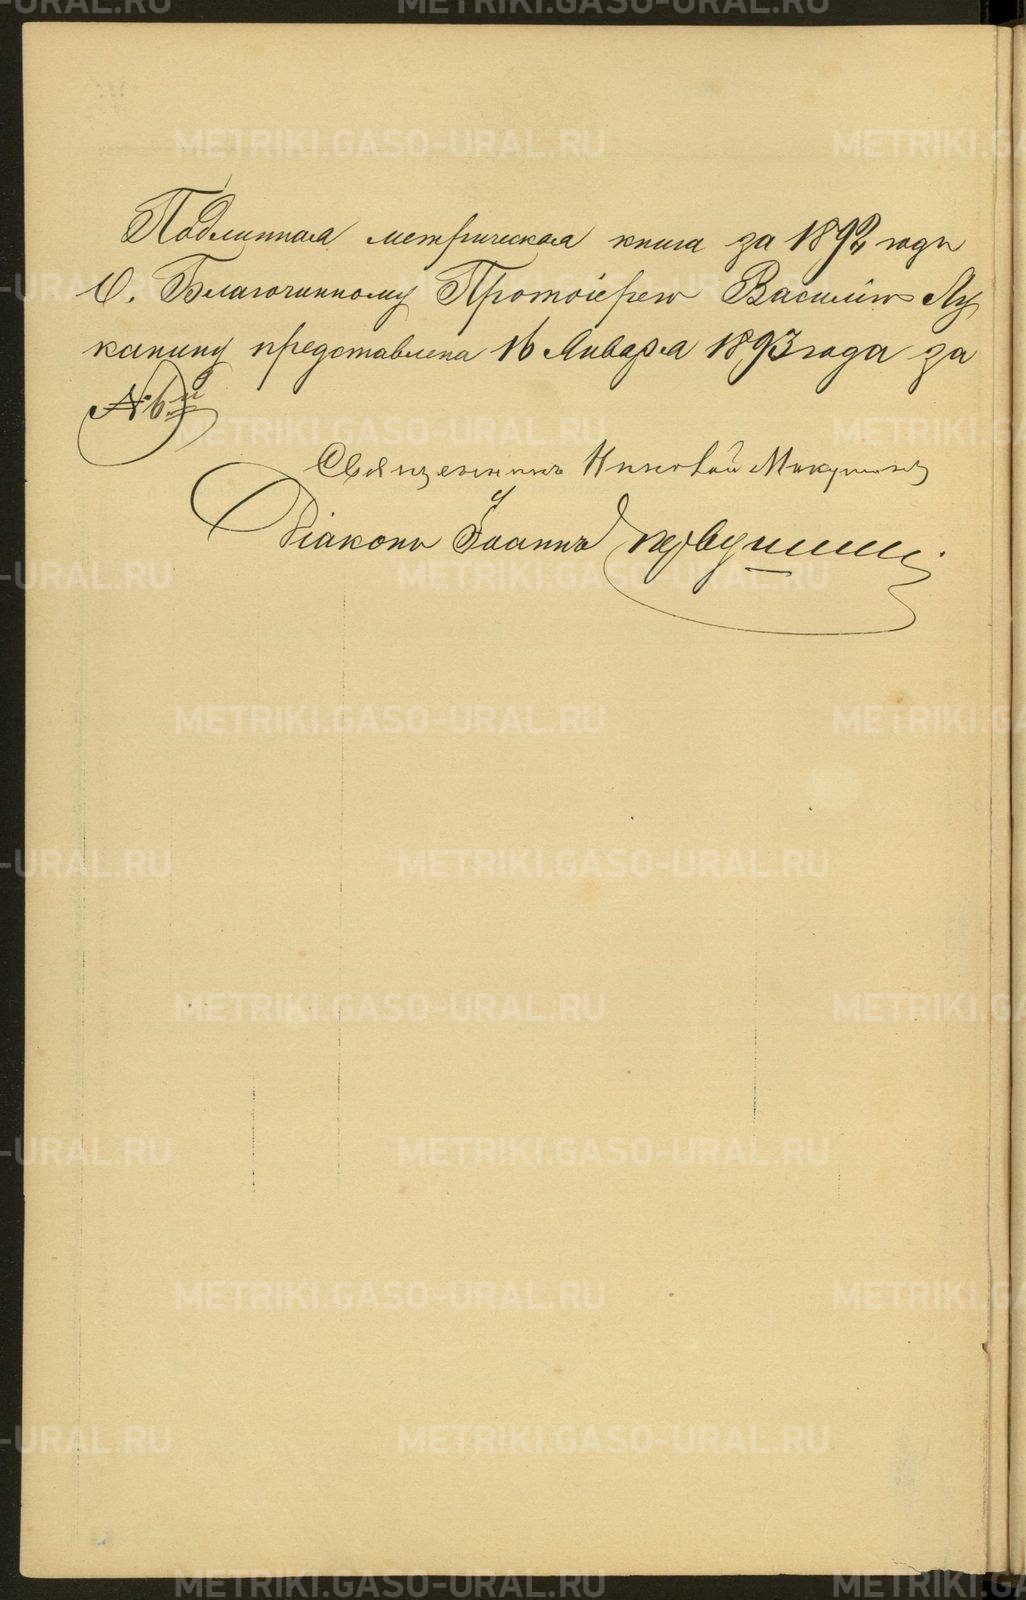 Подлинная метрическая книга за 1892 годъ
О. Благочинному Протоіерею Василію Лу
канину представлена 16 Января 1893 года за
№ 6.й
Священникъ Николай Макушинъ
Діаконъ Іоаннъ Первушинъ.
METRIKI.GASO-URAL.RU